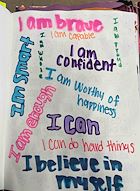 I am brave
I am capable
I am
confident
I am Smart
I am proud
I am worthy of
happiness
I am enough
I can
I can do hard things
I believe in
myself